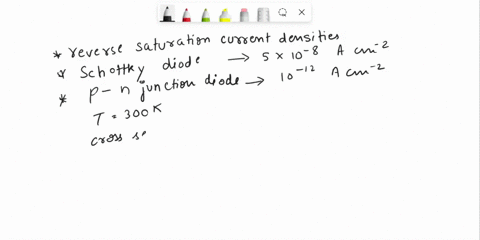 * reverse saturation current densities
* Schottky diode → 5 × 10⁻⁸ A cm⁻²
* p-n junction diode → 10⁻¹² A cm⁻²
T = 300 K
cross se